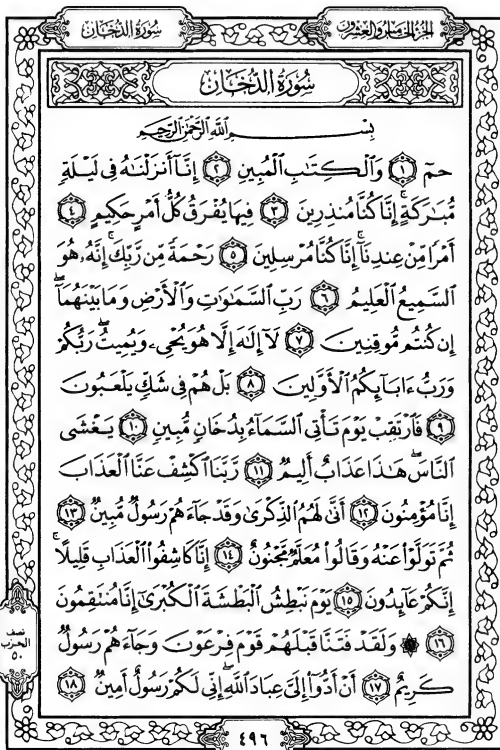 سورة الدخان
الجزء الخامس والعشرون
سُورَةُ الدُّخَانِ
بِسْمِ اللَّهِ الرَّحْمَٰنِ الرَّحِيمِ
حمٓ ١ وَٱلْكِتَٰبِ ٱلْمُبِينِ ٢ إِنَّآ أَنزَلْنَٰهُ فِى لَيْلَةٍ
مُّبَٰرَكَةٍ ۚ إِنَّا كُنَّا مُنذِرِينَ ٣ فِيهَا يُفْرَقُ كُلُّ أَمْرٍ حَكِيمٍ ٤
أَمْرًا مِّنْ عِندِنَآ ۚ إِنَّا كُنَّا مُرْسِلِينَ ٥ رَحْمَةً مِّن رَّبِّكَ ۚ إِنَّهُۥ هُوَ
ٱلسَّمِيعُ ٱلْعَلِيمُ ٦ رَبِّ ٱلسَّمَٰوَٰتِ وَٱلْأَرْضِ وَمَا بَيْنَهُمَآ ۖ
إِن كُنتُم مُّوقِنِينَ ٧ لَآ إِلَٰهَ إِلَّا هُوَ يُحْىِۦ وَيُمِيتُ ۖ رَبُّكُمْ
وَرَبُّ ءَابَآئِكُمُ ٱلْأَوَّلِينَ ٨ بَلْ هُمْ فِى شَكٍّ يَلْعَبُونَ
٩ فَٱرْتَقِبْ يَوْمَ تَأْتِى ٱلسَّمَآءُ بِدُخَانٍ مُّبِينٍ ١٠ يَغْشَى
ٱلنَّاسَ ۖ هَٰذَا عَذَابٌ أَلِيمٌ ١١ رَّبَّنَا ٱكْشِفْ عَنَّا ٱلْعَذَابَ
إِنَّا مُؤْمِنُونَ ١٢ أَنَّىٰ لَهُمُ ٱلذِّكْرَىٰ وَقَدْ جَآءَهُمْ رَسُولٌ مُّبِينٌ ١٣
ثُمَّ تَوَلَّوْا۟ عَنْهُ وَقَالُوا۟ مُعَلَّمٌ مَّجْنُونٌ ١٤ إِنَّا كَاشِفُوا۟ ٱلْعَذَابِ قَلِيلًا ۚ
إِنَّكُمْ عَآئِدُونَ ١٥ يَوْمَ نَبْطِشُ ٱلْبَطْشَةَ ٱلْكُبْرَىٰٓ إِنَّا مُنتَقِمُونَ
١٦ ۞ وَلَقَدْ فَتَنَّا قَبْلَهُمْ قَوْمَ فِرْعَوْنَ وَجَآءَهُمْ رَسُولٌ
كَرِيمٌ ١٧ أَنْ أَدُّوٓا۟ إِلَىَّ عِبَادَ ٱللَّهِ ۖ إِنِّى لَكُمْ رَسُولٌ أَمِينٌ ١٨
نصف
الحزب
٥٠
٤٩٦